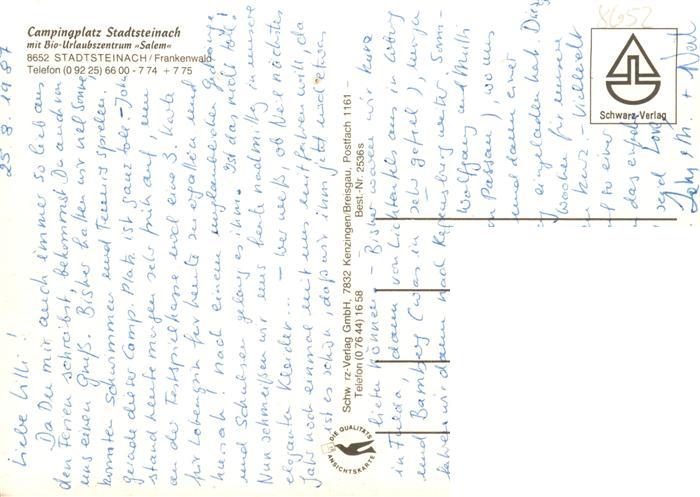 Campingplatz Stadtsteinach
mit Bio-Urlaubszentrum »Salem«
8652 STADTSTEINACH/Frankenwald
Telefon (0 92 25) 66 00 - 7 74 + 7 75
8652
Schwarz-Verlag
Schw rz-Verlag GmbH, 7832 Kenzingen/Breisgau, Postfach 1161 –
Telefon (0 76 44) 16 58 – Best.-Nr. 2536s
DIE QUALITÄTS
ANSICHTSKARTE
25. 8. 1987
Liebe Lilli!
Da Du mir auch immer so lieb aus
den Ferien schreibst, bekommst Du auch von
uns einen Gruß. Bisher hatten wir viel Sonne,
konnten Schwimmen und Tennisspielen.
gerade dieser Camp. Platz ist ganz toll. - Joh
stand heute morgen sehr früh auf um
an der Festspielkasse noch eine 3. Karte
für Lohengrin für heute zu ergattern und
hurrah! nach einem unglaublichen
und Schubsen gelang es ihm. Ist das nicht toll!
Nun schmeißen wir uns heute nachmittag in unsere
eleganten Kleider... – wer weiß, ob Nel nächstes
Jahr noch einmal mit uns mitfahren will, da
ist es schön, daß wir ihm jetzt noch etwas
bieten können. - Bisher waren wir kurz
in Fulda, dann von Lichtenfels aus in Coburg
und Bamberg (was in sehr gefiel), morgen
fahren wir dann nach Regensburg weiter,
Wolfgang und Milli
on Passau), wo uns
und dann einer
eingeladen hat. Dann
Woche für unsere
kurz - Vielleicht
zu einer
das
+ Nel